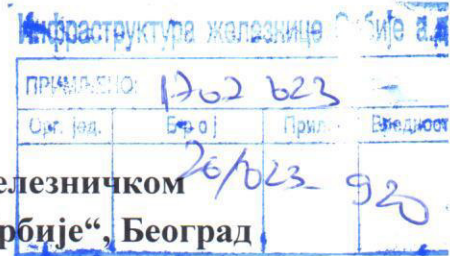 Инфраструктура железнице Србије а.д
ПРИМЉЕНО:
Орг. јед. Број Прил. Вредност
26/023- 920
елезничком
рбије“, Београд